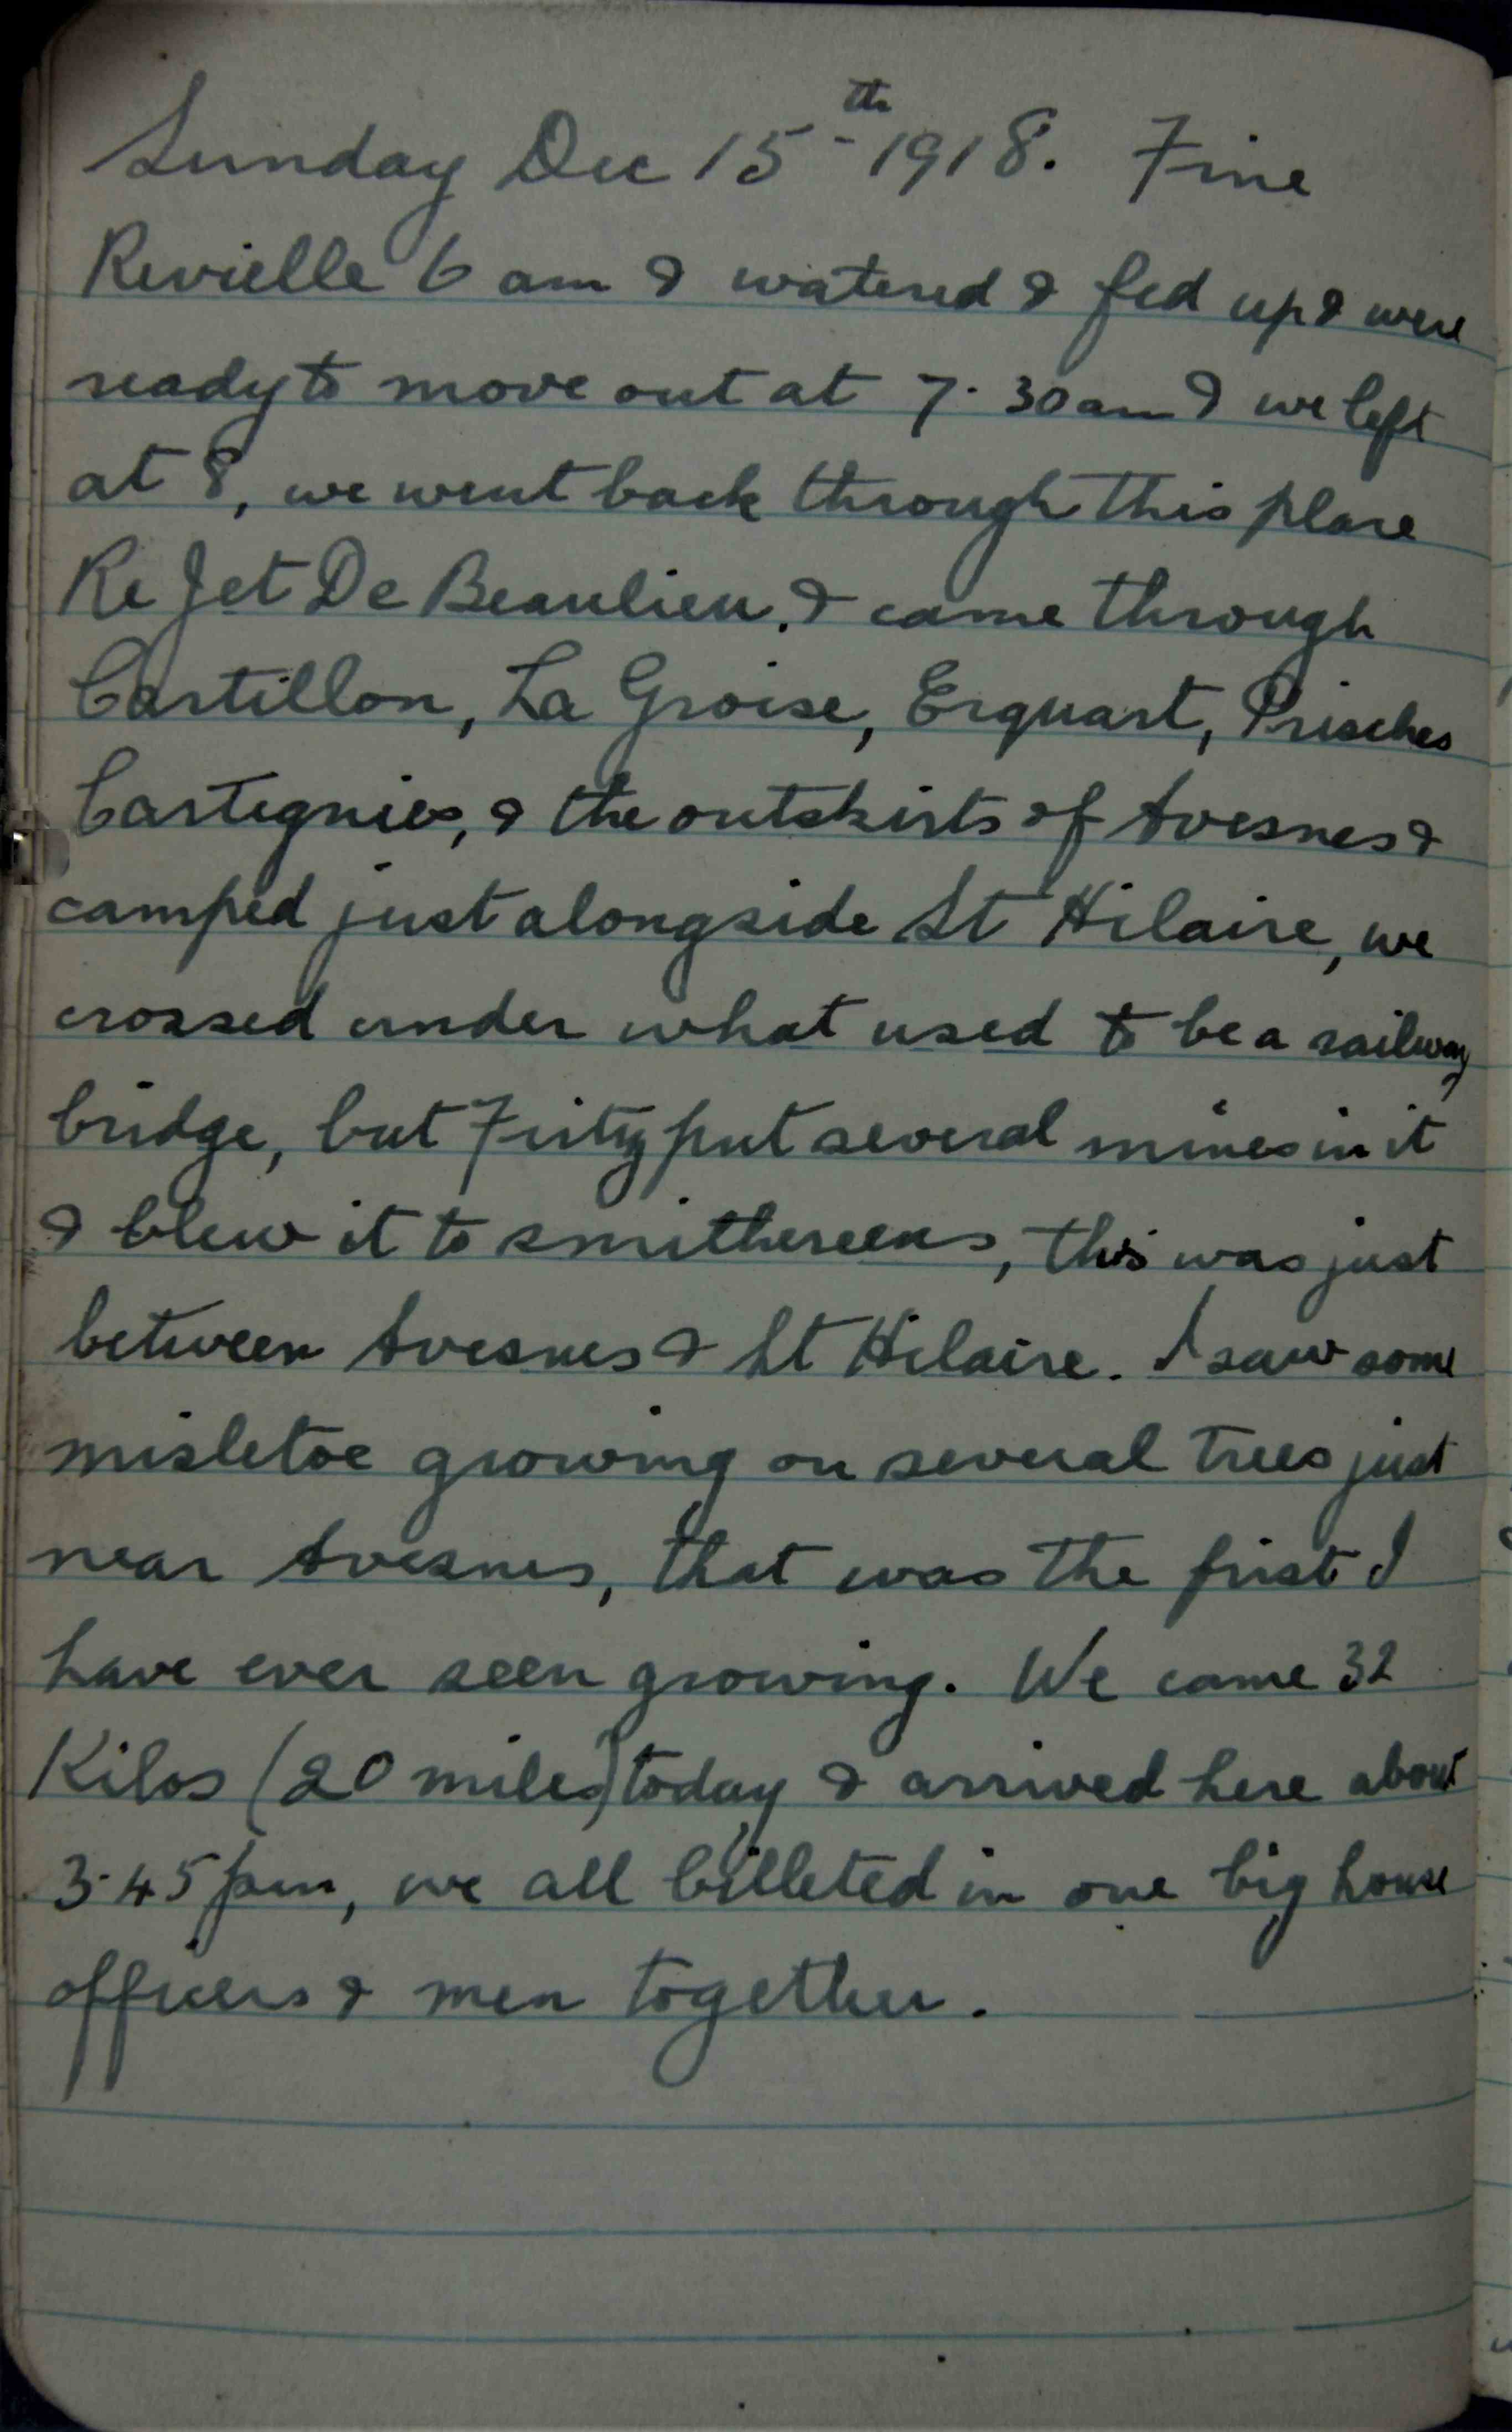 Sunday Dec 15th 1918. Fine
Revielle 6 am & watered & fed up & were
ready to move out at 7.30 am & we left
at 8, we went back through this place
Re Jet De Beaulieu. & came through
Cartillon, La Groise, Erquart, Prisches
Cartegnies, & the outskirts of Avesnes &
camped just alongside St Hilaire, we
crossed under what used to be a railway
bridge, but Fritz put several mines in it
& blew it to smithereens, this was just
between Avesnes & St Hilaire. I saw some
misletoe growing on several trees just
near Avesnes, that was the first I
have ever seen growing. We came 32
Kilos (20 miles) today & arrived here about
3.45 pm, we all billeted in one big house
officers & men together.